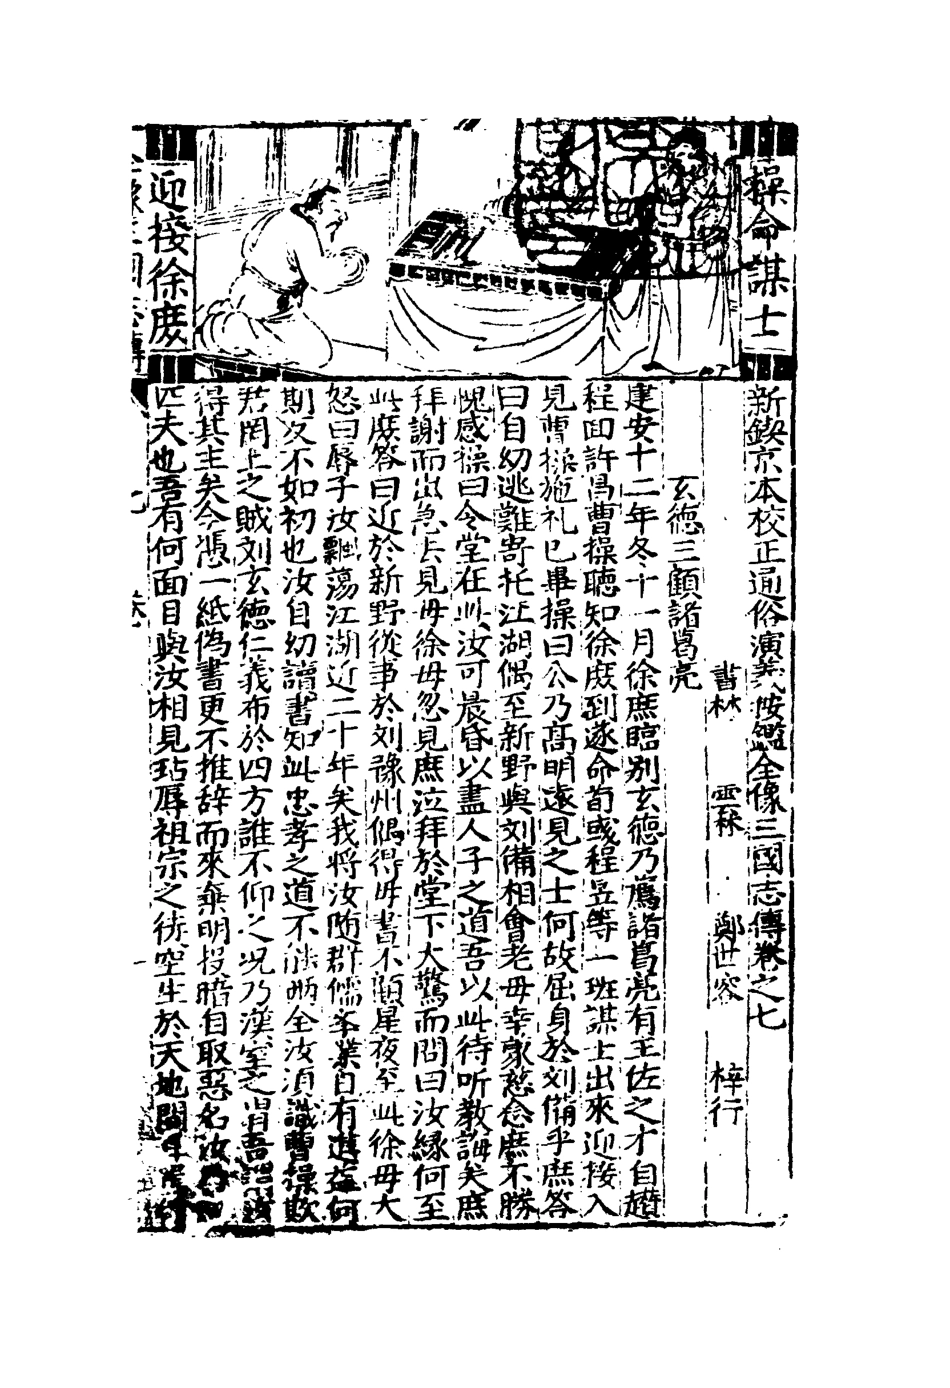 操命謀士
迎接徐庶
新鍥京本校正通俗演義按鑑全像三國志傳卷之七
書林 雲林 鄭世容 梓行
玄德三顧諸葛亮
建安十二年冬十一月徐庶臨別玄德乃薦諸葛亮有王佐之才自趲
程回許昌曹操聽知徐庶到遂命荀彧程昱等一班謀士出來迎接入
見曹操施礼已畢操曰公乃高明遠見之士何故屈身於刘備乎庶答
曰自幼逃難寄托江湖偶至新野與刘備相會老母幸蒙慈念庶不勝
愧感操曰令堂在此汝可晨昏以盡人子之道吾以此待听教誨矣庶
拜謝而出急去見母徐母忽見庶泣拜於堂下大驚而問曰汝緣何至
此庶答曰近於新野從事於刘豫州偶得母書不顧星夜至此徐母大
怒曰辱子汝飄蕩江湖近二十年矣我将汝随群儒峯業自有進益何
期反不如初也汝自幼讀書知此忠孝之道不能兩全汝須識曹操欺
君罔上之賊刘玄德仁義布於四方誰不仰之况乃漢室之冑吾謂汝
得其主矣今憑一紙偽書更不推辞而來棄明投暗自取惡名汝
匹夫也吾有何面目與汝相見玷辱祖宗之徒空生於天地間